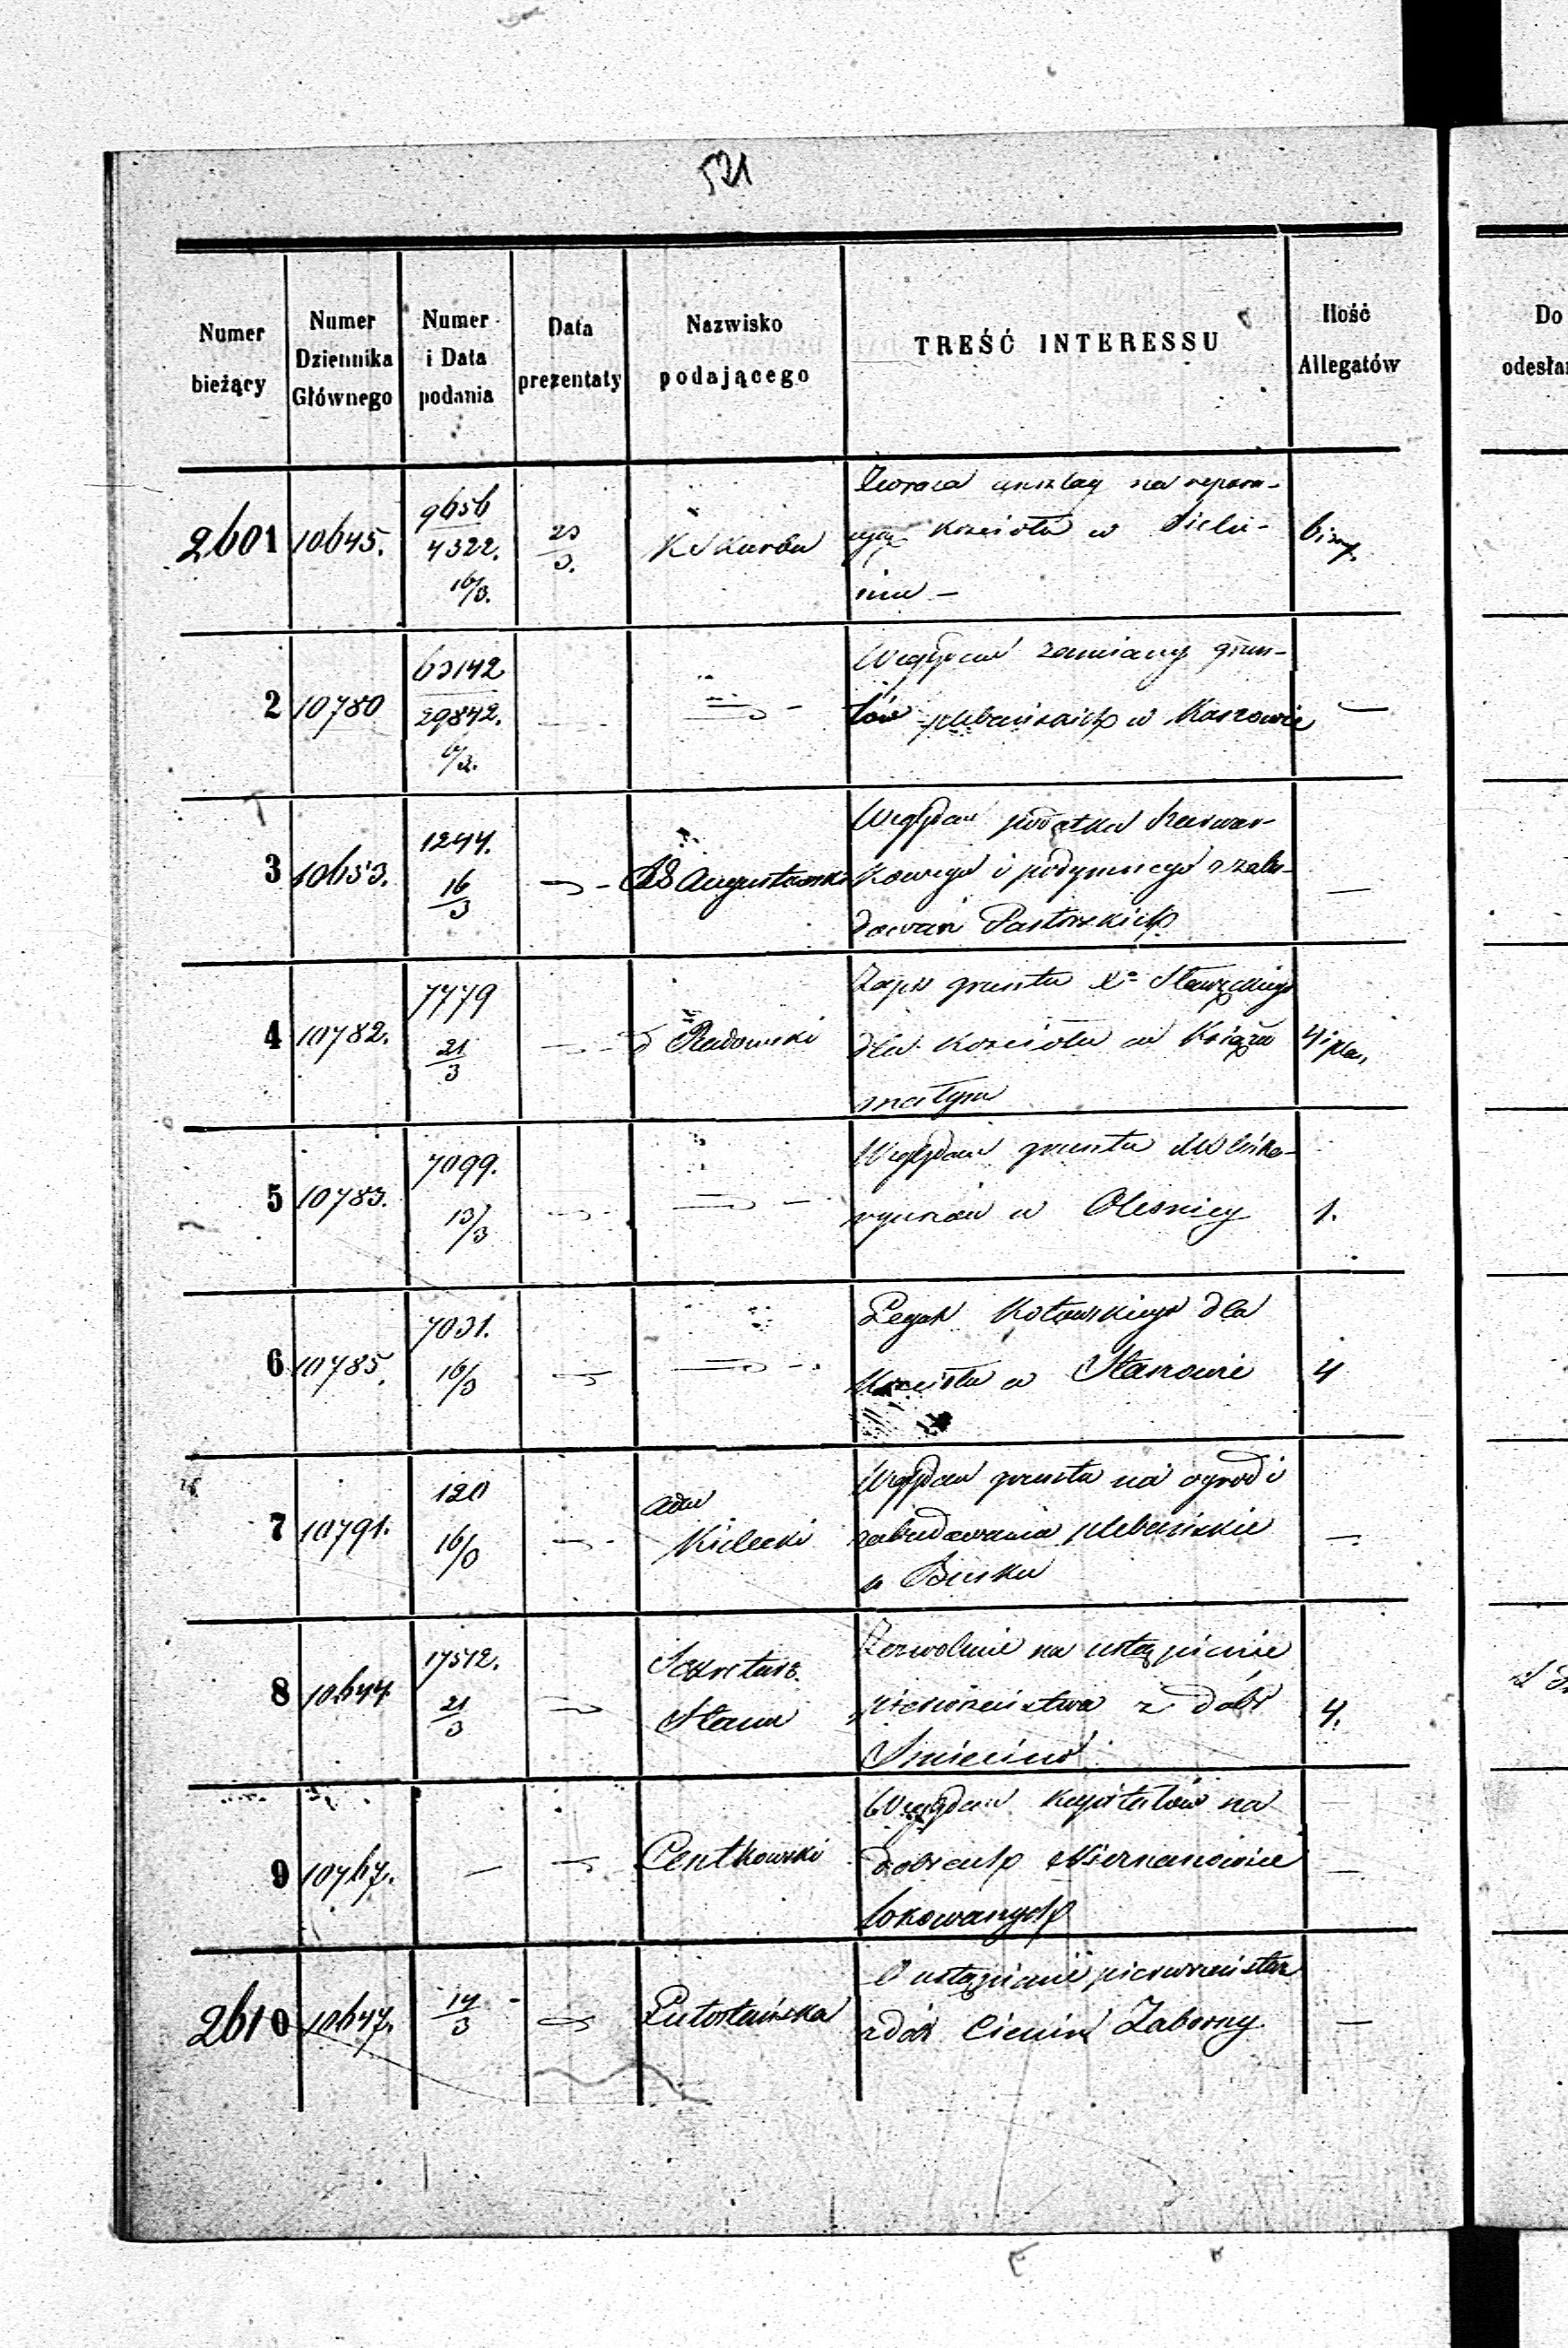 521
Numer bieżący | Numer Dziennika Głównego | Numer i Data podania | Data prezentaty | Nazwisko podającego | TREŚĆ INTERESSU | Ilość Allegatów | Do
2601 | 10645. | 9656 / 4322. 16/3. | 23/3. | K. Skarbu | Zwraca anszlag na repara-
cyą kościoła w
2 | 10780 | 63142 / 29842. | Względem zamiany grun-
tów plebańskich w Kaszowie | —
3 | 10653. | 1244. 16/3 | Augustowski | Względem podatku szarwar-
kowego i podymnego z zabu-
dowań Pastorskich | —
4 | 10782. | 7779 21/3 | Radomski | Zapis gruntu Xa
dla kościoła w Książu | 4 i plan
małym
5 | 10783. | 7099. 13/3 | Względem gruntu
w Olesnicy | 1.
6 | 10785. | 7031. 16/3 | Legat Kotowskiego dla
Kościoła w | 4
7 | 10791. | 120 16/3 | Kielecki | Względem gruntu na ogród i
zabudowania plebańskie | —
w Busku
8 | 10644 | 17512. 21/3 | Sekretarz Stanu | Zezwolenie na ustąpienie
pierwszeństwa z dóbr | 4.
9 | 10767. | — | Centkowski | Względem kapitałów na
dobrach
lokowanych | —
2610 | 10647. | 14/3 | O ustąpienie pierwszeństwa
z dóbr Ciemin Zaborny | —